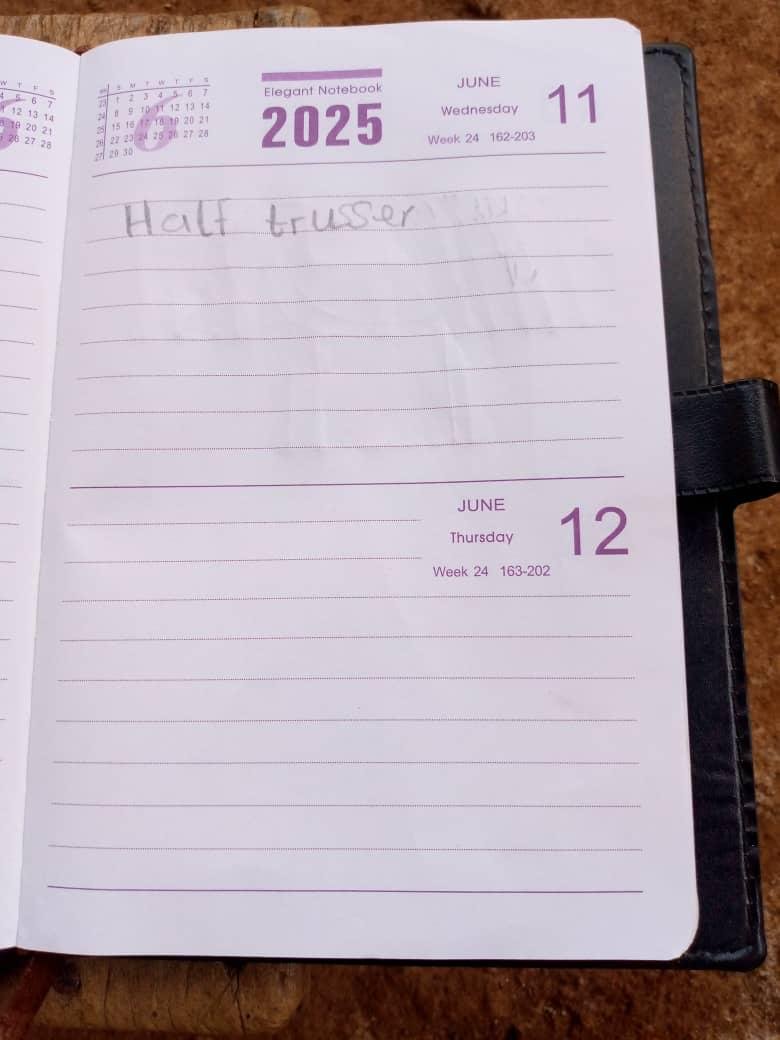 W T F S
4 5 6 7
11 12 13 14
18 19 20 21
26 27 28
6
S M T W T F S
23 1 2 3 4 5 6 7
24 8 9 10 11 12 13 14
25 15 16 17 18 19 20 21
26 22 23 24 25 26 27 28
27 29 30
Elegant Notebook
2025
JUNE
Wednesday 11
Week 24 162-203
Half trusser
JUNE
Thursday 12
Week 24 163-202